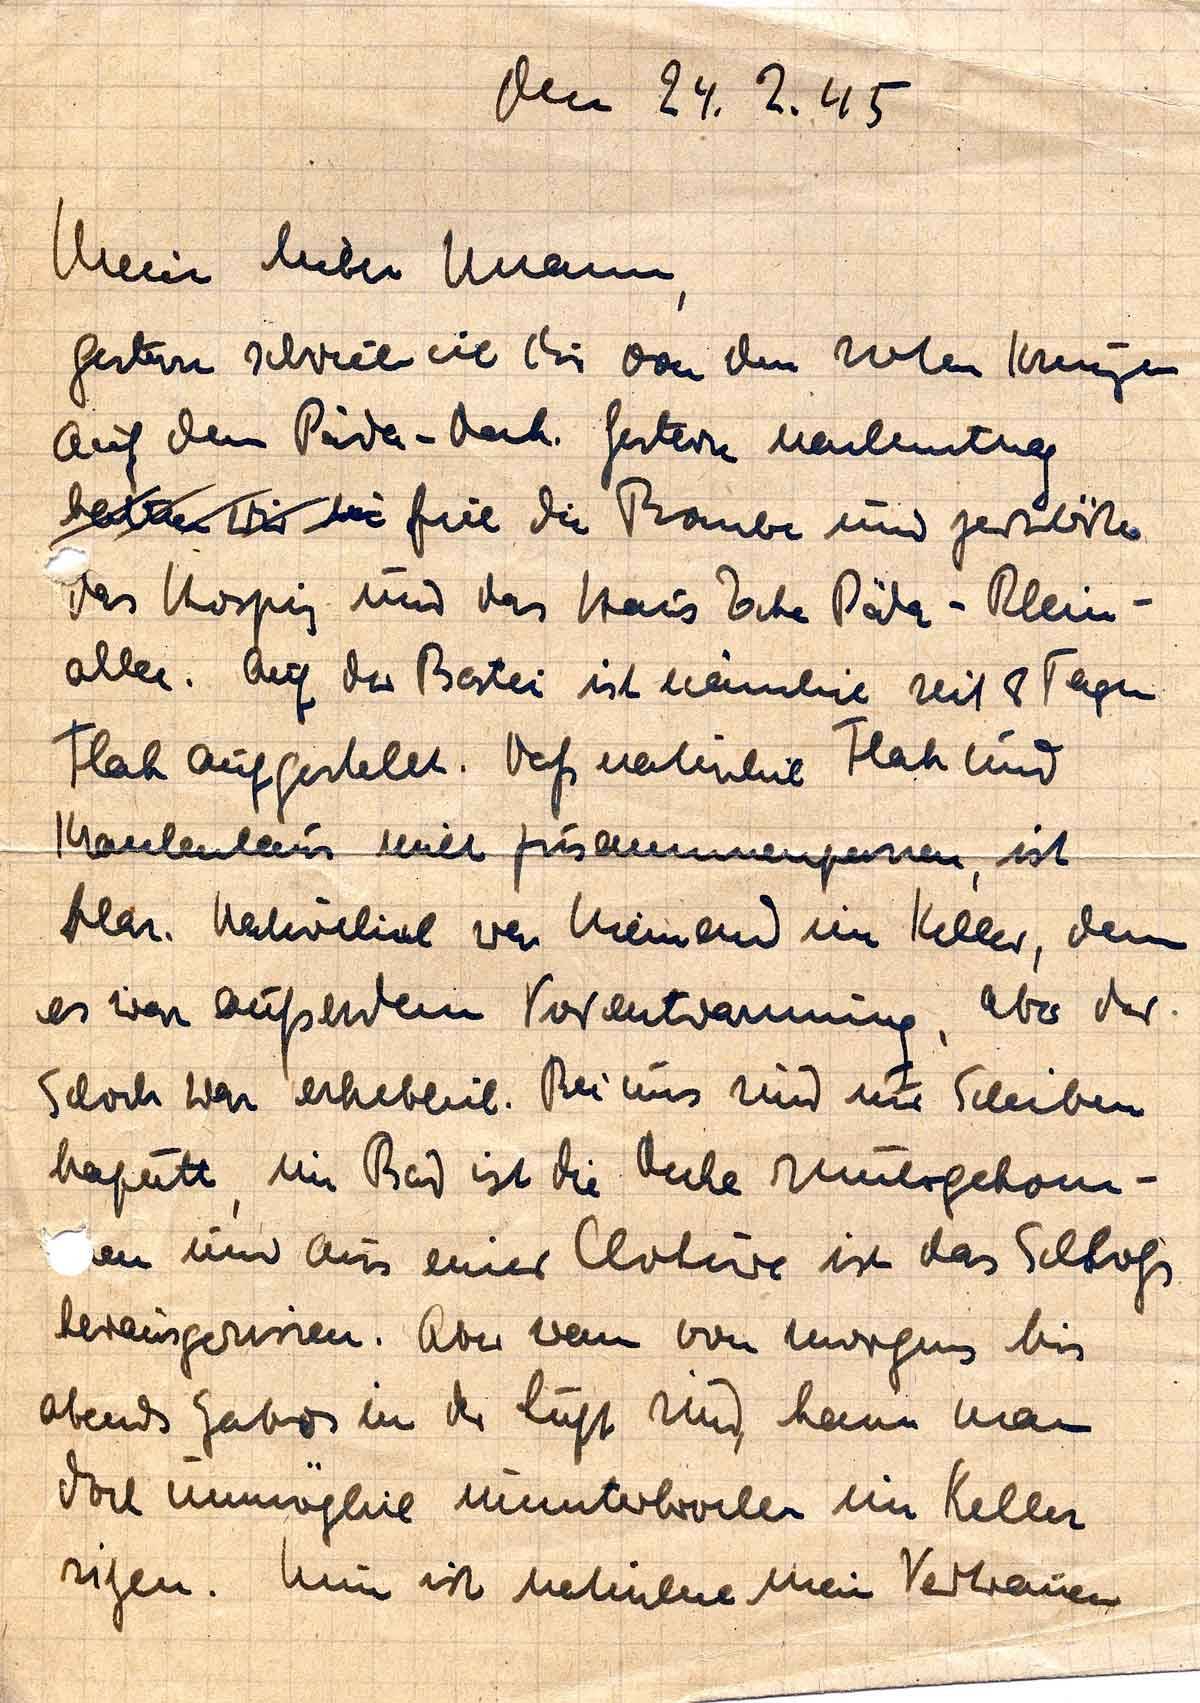 den 24. 2. 45
Mein lieber Mann,
gestern schrieb ich Dir von den roten Kreuzen
auf dem Päda-Dach. Gestern nachmittag
hatten wir die fiel die Bombe und zerstörte
das Hospiz und das Haus Ecke Päda - Rhein-
allee. Auf der Bastei ist nämlich seit 8 Tagen
Flak aufgestellt. Daß natürlich Flak und
Krankenhaus nicht zusammenpassen, ist
klar. Natürlich war Niemand im Keller, denn
es war außerdem Vorentwarnung, aber der
Schock war erheblich. Bei uns sind nur Scheiben
kaputt, im Bad ist die Decke runtergekom-
en und aus einer Clotüre ist das Schloß
herausgerissen. Aber wenn von morgens bis
abends Jabos in der Luft sind, kann man
doch unmöglich ununterbrochen im Keller
sitzen. Nun ist natürlich mein Vertrauen